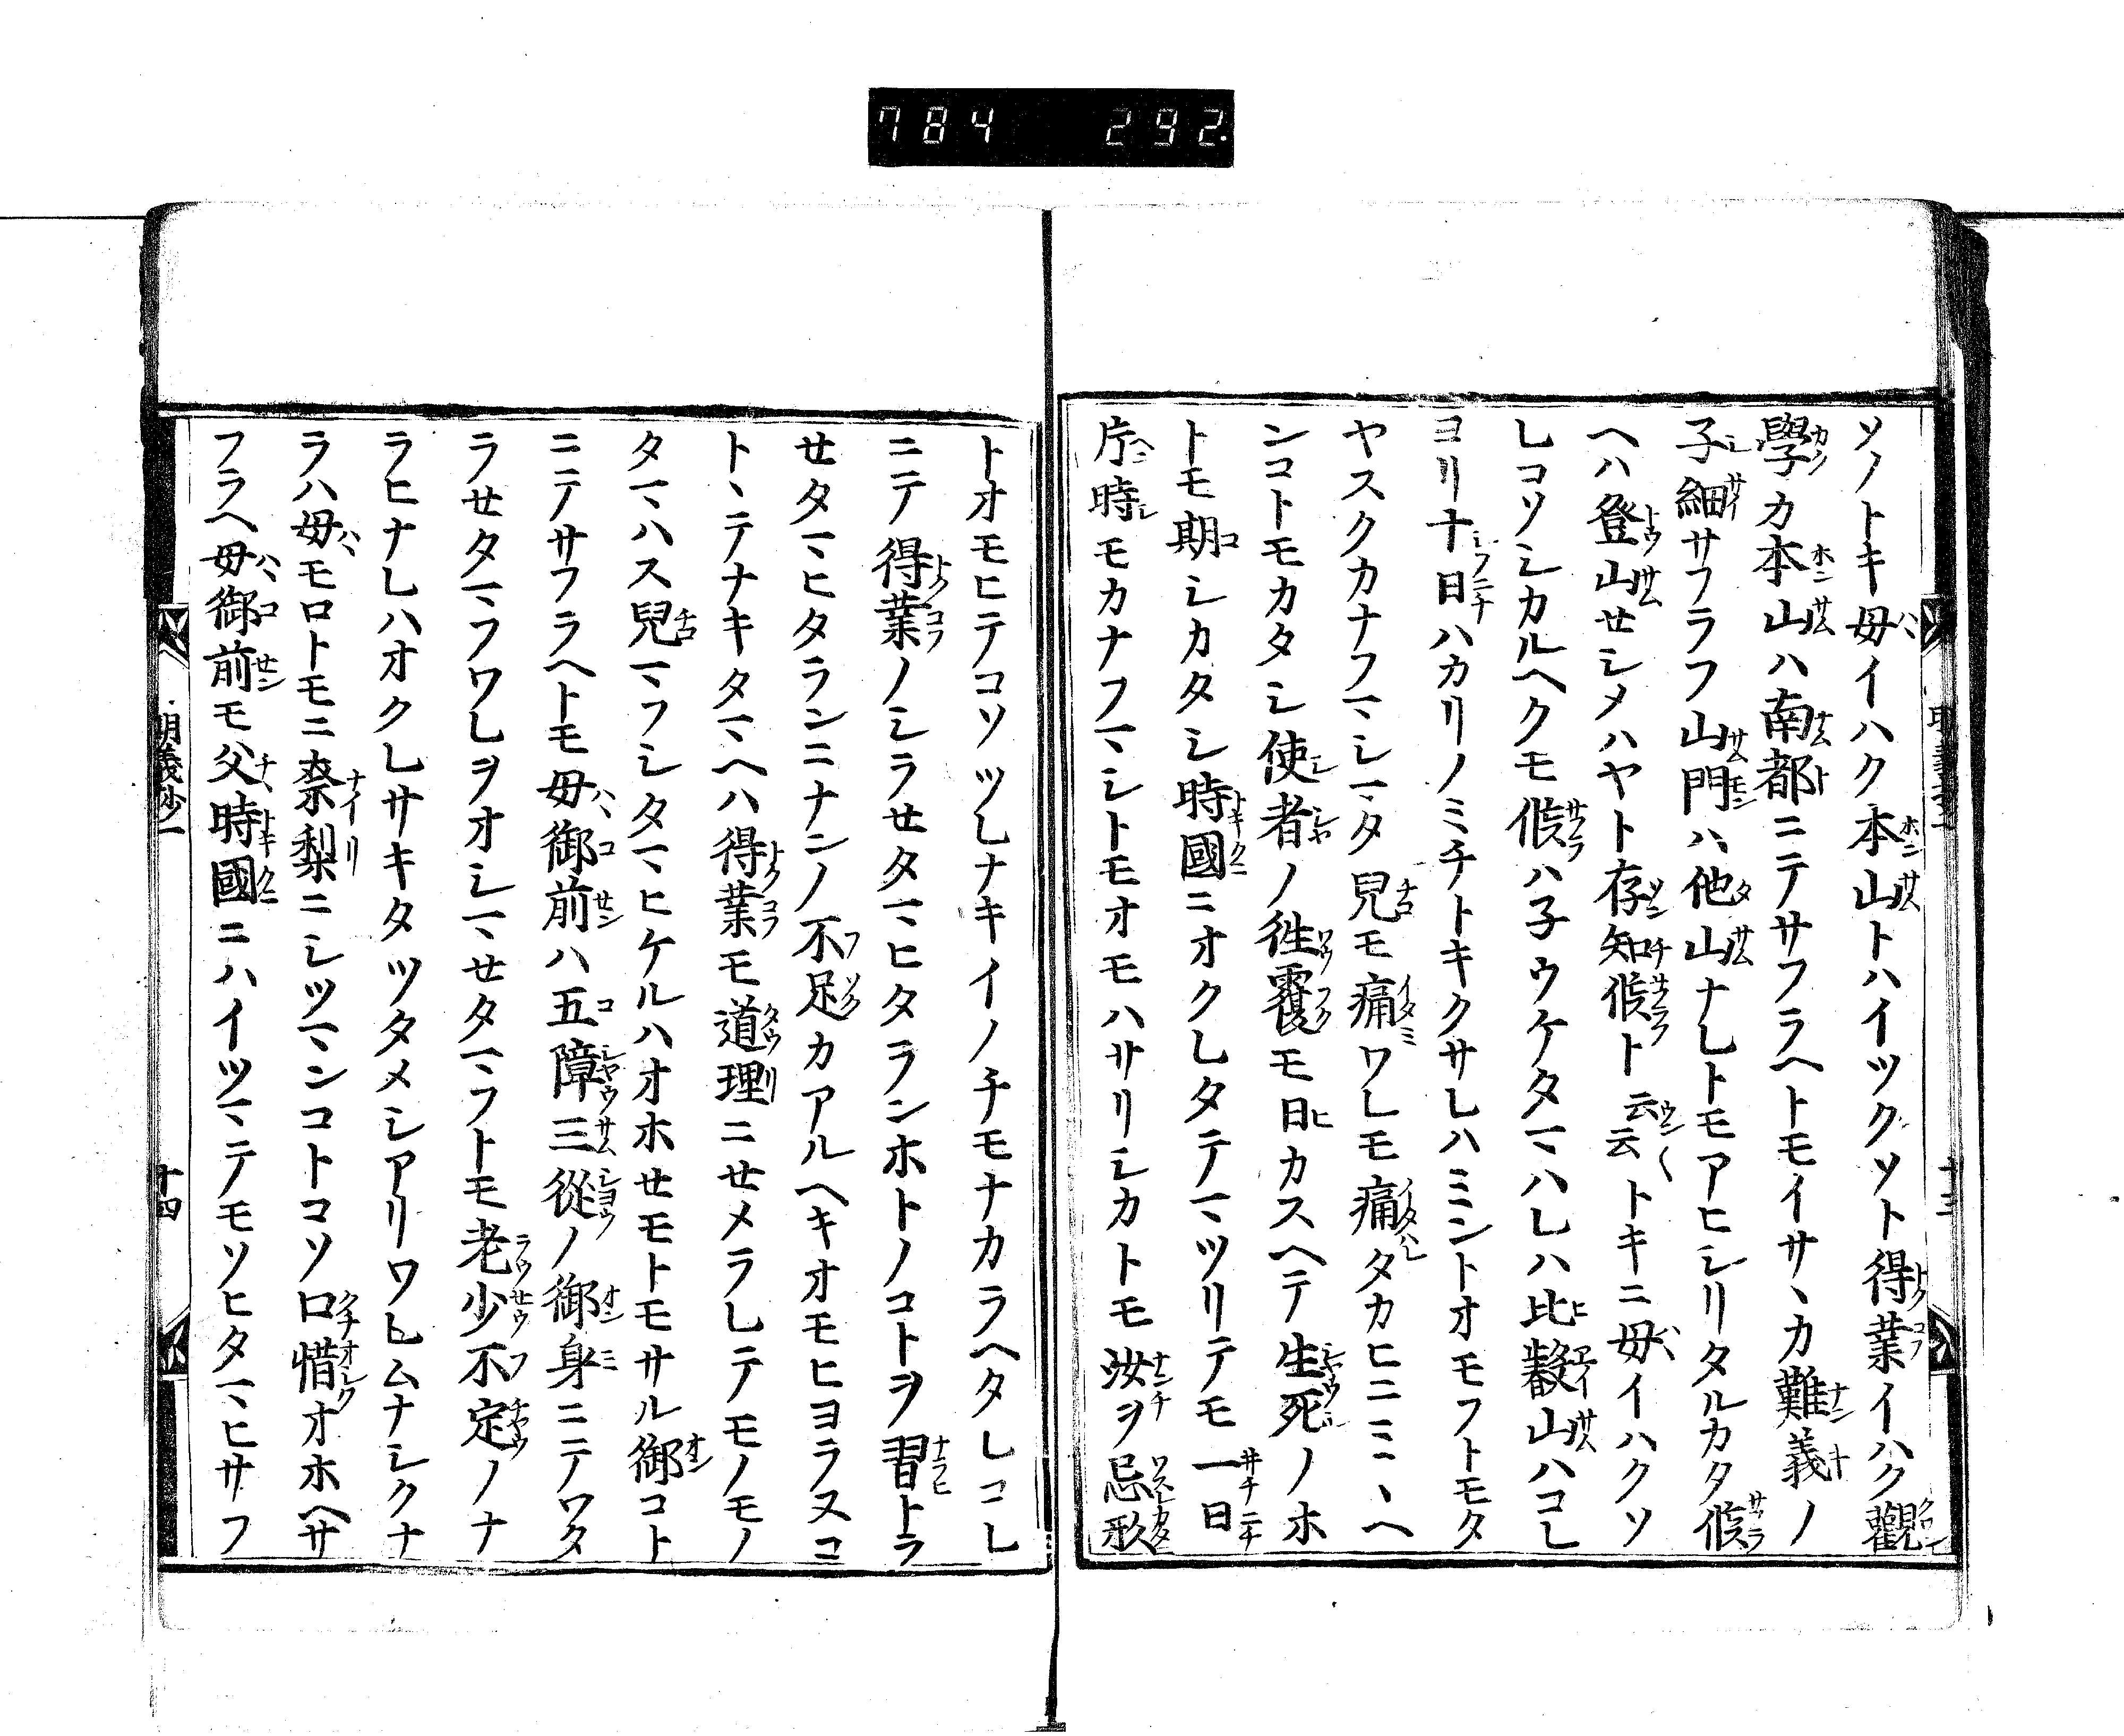 784 292.
ソノトキ母イハク本山トハイツクソト得業イハク觀
學カ本山ハ南都ニテサフラヘトモイサヽカ難義ノ
子細サフラフ山門ハ他山ナレトモアヒシリタルカタ候
ヘハ登山セシメハヤト存知候ト云云トキニ母イハクソ
レコソシカルヘクモ候ハ子ウケタマハレハ比叡山ハコレ
ヨリ十日ハカリノミチトキクサレハミントオモフトモタ
ヤスクカナフマシマタ兒モ痛ワレモ痛タカヒニミヽヘ
ンコトモカタシ使者ノ徃覆モ日カスヘテ生死ノホ
トモ期シカタシ時國ニオクレタテマツリテモ一日
片時モカナフマシトモオモハサリシカトモ汝ヲ忌形
トオモヒテコソツレナキイノチモナカラヘタレコレ
ニテ得業ノシラセタマヒタランホトノコトヲ習トラ
セタマヒタランニナンノ不足カアルヘキオモヒヨラヌコ
トヽテナキタマヘハ得業モ道理ニセメラレテモノモノ
タマハス兒マフシタマヒケルハオホセモトモサル御コト
ニテサフラヘトモ母御前ハ五障三從ノ御身ニテワタ
ラセタマフワレヲオシマセタマフトモ老少不定ノナ
ラヒナレハオクレサキタツタメシアリワレムナシクナ
ラハ母モロトモニ奈梨ニシツマンコトコソ口惜オホヘサ
フラヘ母御前モ父時國ニハイツマテモソヒタマヒサフ
明義抄一
十四